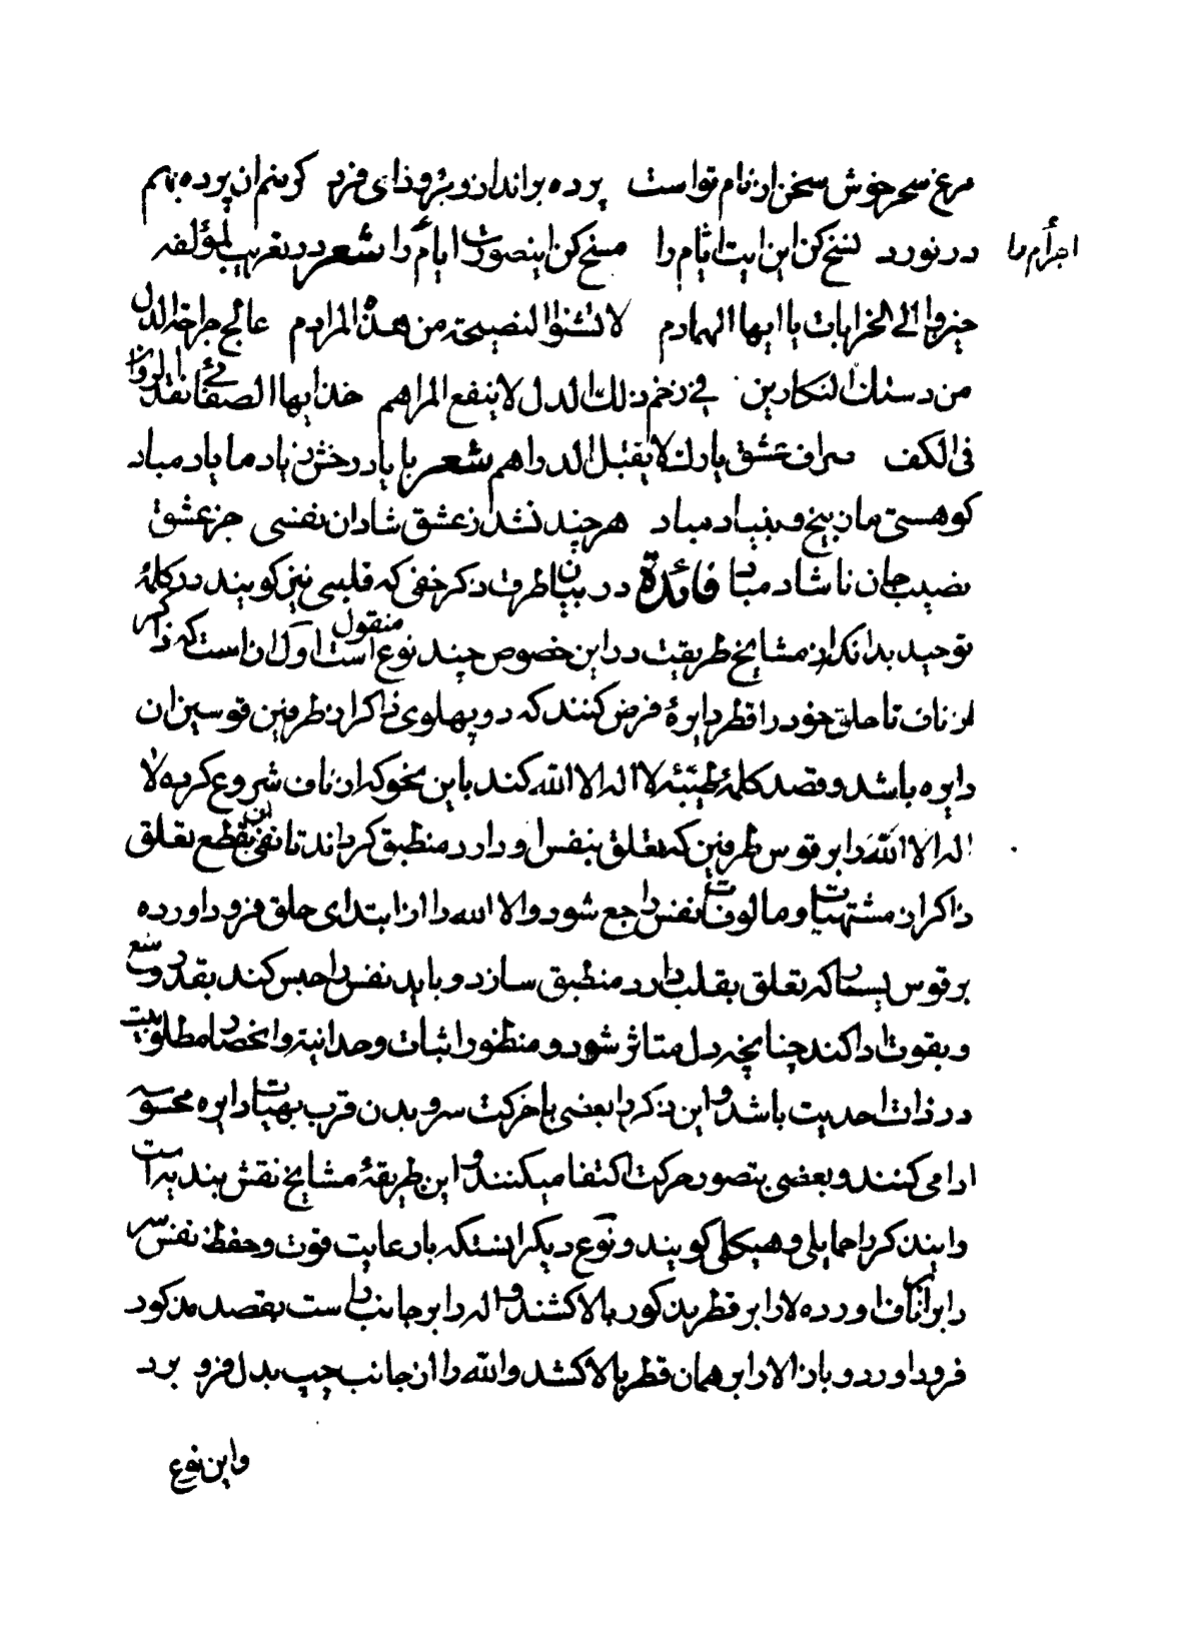 مرغ سحر خوش سخن از نام تواست پرده براندازو برو ذای فرد کر منم ان پرده بهم
در نورد نسخ کن این ایت ایام را مسخ کن اینصورت اجرام را شعر در تعریب لمؤلفه
اجرام را
خیزوا الی الخرابات یا ایها النهادم لا تشنوا النصیحة من هذه المرادم عالج جراحة الدل
من دستک النکارین فی زخم ذلك الدل لا ینفع المراهم خذ ایها الصفائی نقد الروان
فی الکف صراف عشق یارك لا یقبل الدراهم شعر با یاد رخش زیاد ما یاد مباد
کو هستی مان بیخ و بنیاد مباد هر چند نشد ز عشق شادان نفسی جز عشق
نصیب جان ناشاد مباد فائدة در بیان طرق ذکر خفی که قلبی نیز کویند در کلمۀ
توحید بدانکه از مشایخ طریقت در این خصوص چند نوع منقول است اول ان است که ذاکر
از ناف تا حلق خود را قطر دایرۀ فرض کنند که دو پهلوی ذاکر از طرفین قوسین ان
دایره باشد و قصد کلمۀ طیبۀ لا اله الا الله کند باین نحو که از ناف شروع کرده لا
اله الا الله را بر قوس طرفین که تعلق بنفس او دارد منطبق کرداند تا نفی این بقطع تعلق
ذاکر از مشتهیات و مالوفات نفس راجع شود و الا الله را از ابتدای حلق فرود اورده
بر قوس یسار که تعلق بقلب دارد منطبق سازد و باید نفس را حبس کند بقدر وسع
و بقوت ادا کند چنانچه دل متاثر شود و منظور اثبات وحدانیة و انحصار مطلوبیت
در ذات احدیت باشد و این ذکر را بعضی با حرکت سر و بدن قرب بهیات دایره محسوسه
ادا می کنند و بعضی بتصور حرکت اکتفا میکنند و این طریقۀ مشایخ نقش بندیه است
و این ذکر را حمایلی و هیکلی کویند و نوع دیکر انستکه با رعایت قوت و حفظ نفس سر
را برابر ناف اورده لا را بر قطر مذکور بالا کشند و اله را بر جانب راست بقصد مذکور
فرود اورد و باز الا را بر همان قطر بالا کشد و الله را از جانب چپ بدل فرو برد
و این نوع